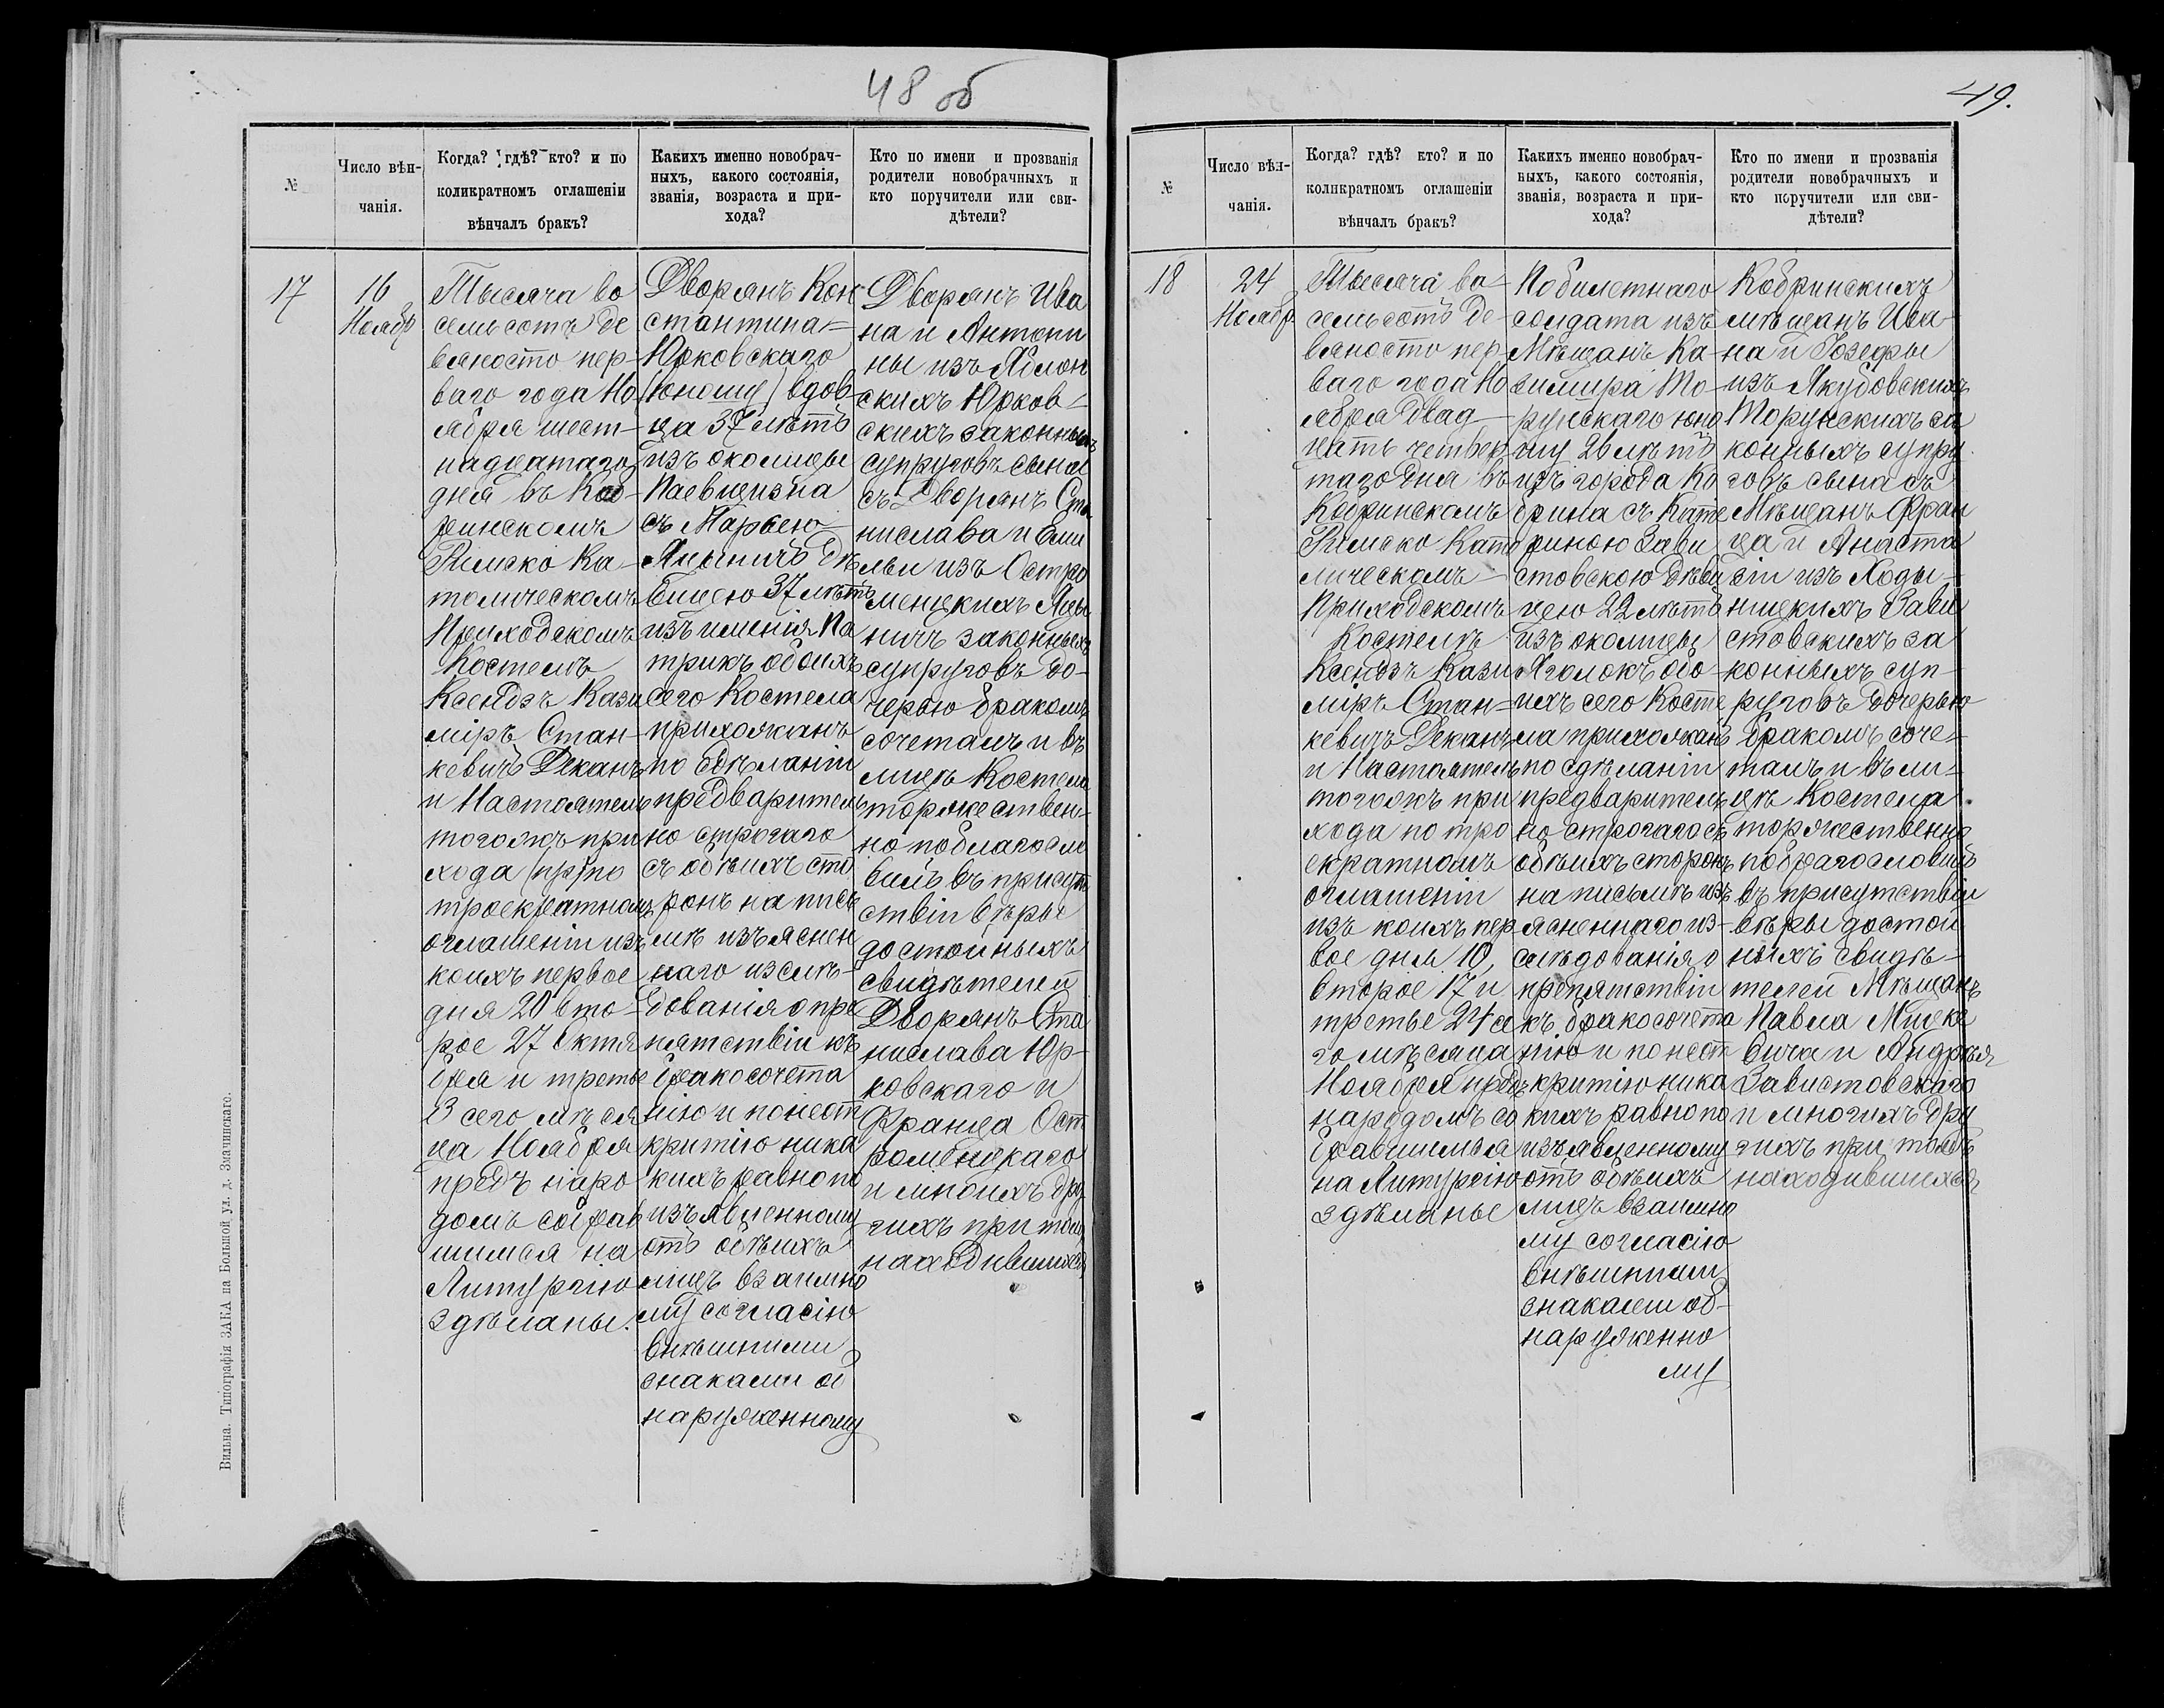 48 об
№
Число вѣн-
чанія.
Когда? гдѣ? кто? и по
коликратномъ оглашеніи
вѣнчалъ бракъ?
Какихъ именно новобрач-
ныхъ, какого состоянія,
званія, возраста и при-
хода?
Кто по имени и прозванія
родители новобрачныхъ и
кто поручители или сви-
дѣтели?
17
16
Ноябр
Тысяча во
семьсотъ де
вяносто пер-
ваго года Но
ября шест-
надцатаго
дня въ Коб-
ринскомъ
Римско Ка-
толическомъ
Приходскомъ
Костелѣ
Ксендзъ Кази
міръ Стан-
кевичъ Деканъ
и Настоятель
тогожъ при
хода (пр) по
троекратномъ
оглашеніи изъ
коихъ первое
дня 20 вто-
рое 27 Октя
бря и третье
3 сего мѣся
ца Ноября
предъ наро
домъ собрав
шимся на
Литургію
здѣланы.
Дворянъ Кон
стантина
Юрковскаго
(юношу) вдов-
ца 37 лѣтъ
изъ околицы
Паевщизна
съ Марьею
Яцыничъ дѣ
вицею 37 лѣтъ
изъ именія Па
трикъ обоихъ
сего Костела
прихожанъ
по сдѣланіи
предваритель
но строгаго
съ обѣихъ сто
ронъ на пись
мѣ изъяснен
наго изслѣ-
дованія о пре
пятствіи къ
бракосочета
нію и по неот
критію ника
кихъ равно по
изъявленному
отъ обѣихъ
лицъ взаимно
му согласію
внѣшними
знаками об
наруженному
Дворянъ Ива
на и Антони
ны изъ Яблон
скихъ Юрков-
скихъ законныхъ
супруговъ сына
съ Дворянъ Ста
нислава и Еми
льи изъ Остро
менцкихъ Яцы
ничъ законныхъ
супруговъ до-
черью бракомъ
сочеталъ и въ
лицѣ Костела
торжествен-
но поблагосло
вилъ въ присут
ствіи вѣры
достойныхъ
свидѣтелей
Дворянъ Ста
нислава Юр-
ковскаго и
Франца Ост
роменцкаго
и многихъ дру
гихъ при томъ
находившихся
Вильна. Типографія ЗАКА на Большой ул. д. Змачинскаго.
49.
№
Число вѣн-
чанія.
Когда? гдѣ? кто? и по
коликратномъ оглашеніи
вѣнчалъ бракъ?
Какихъ именно новобрач-
ныхъ, какого состоянія,
званія, возраста и при-
хода?
Кто по имени и прозванія
родители новобрачныхъ и
кто поручители или сви-
дѣтели?
18
24
Ноябр
Тысяча во-
семьсотъ де-
вяносто пер-
ваго года Но
ября двад-
цать четвер
таго дня въ
Кобринскомъ
Римско Като
лическомъ
Приходскомъ
Костелѣ
Ксендзъ Кази
міръ Стан-
кевичъ Деканъ
и Настоятель
тогожъ при
хода по тро
екратномъ
оглашеніи
изъ коихъ пер
вое дня 10,
второе 17 и
третье 24 се
го мѣсяца
Ноября предъ
народомъ со
бравшимся
на Литургію
здѣланы
Побилетнаго
солдата изъ
Мѣщанъ Ка-
зимира То-
рунскаго юно
шу 26 лѣтъ
изъ города Ко
брина съ Кате
риною Зави
стовскою дѣви
цею 22 лѣтъ
изъ околицы
Яголокъ обо
ихъ сего Косте
ла прихожанъ
по сдѣланіи
предваритель
но строгаго съ
обѣихъ сторонъ
на письмѣ изъ
ясненнаго из-
слѣдованія о
препятствіи
къ бракосочета
нію и по неот
критію ника
кихъ равно по
изъявленному
отъ обѣихъ
лицъ взаимно
му согласію
внѣшними
знаками об-
наруженно
му
Кобринскихъ
мѣщанъ Ива-
на и Іозефы
изъ Якубовскихъ
Торунскихъ за
конныхъ супру
говъ сына съ
Мѣщанъ Фран
ца и Анаста
сіи изъ Ходы-
ницкихъ Зави
стовскихъ за
конныхъ суп-
руговъ дочерью
бракомъ соче-
талъ и въ ли-
цѣ Костела
торжественно
поблагословилъ
въ присутствіи
вѣры достой
ныхъ свидѣ-
телей Мѣщанъ
Павла Мицке
вича и Андрея
Завистовскаго
и многихъ дру
гихъ при томъ
находившихся